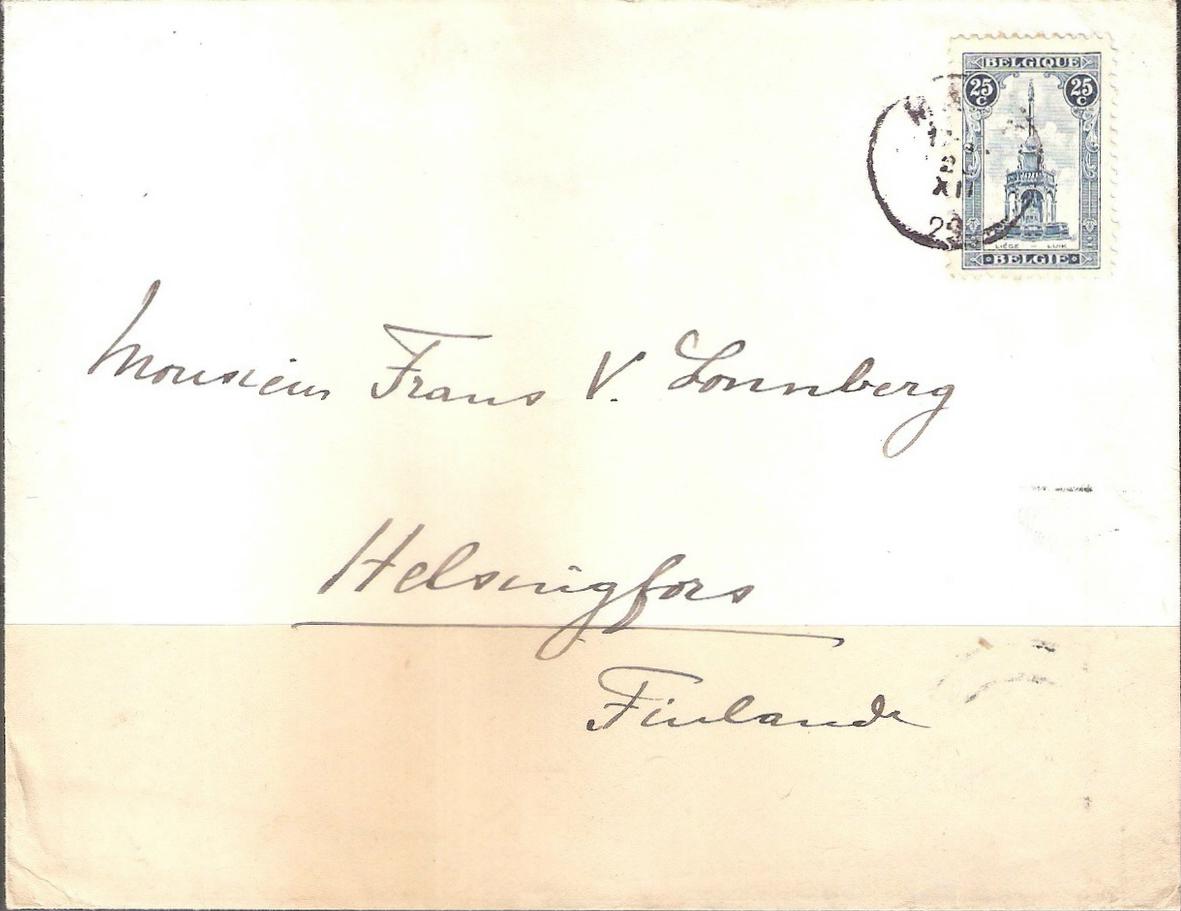 BELGIQUE
25 C 25 C
XII
LIÉGE — LUIK
BELGIË
Monsieur Frans V. Lonnberg
Helsingfors
Finlande